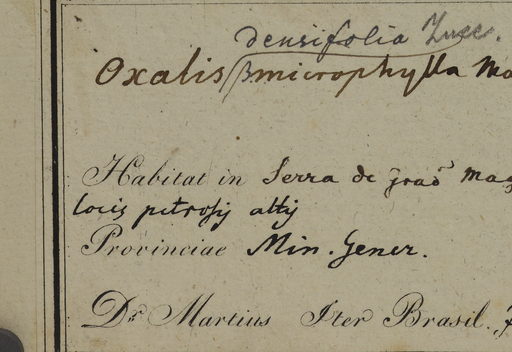 densifolia Zucc.
Oxalis β microphylla Ma
Habitat in Serra de grao mag
locis petrosis altis
Provinciae Min. Gener.
Dr. Martius Iter Brasil.